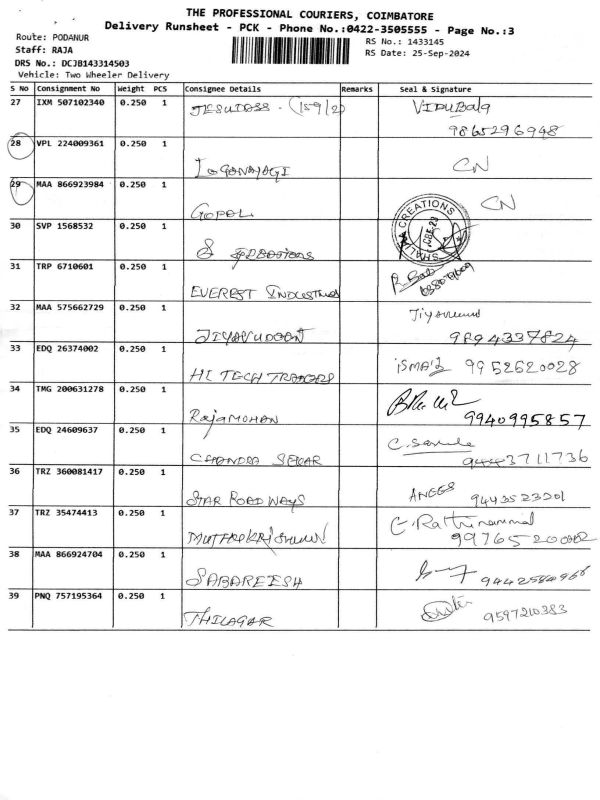 THE PROFESSIONAL COURIERS, COIMBATORE
Delivery Runsheet - PCK - Phone No.:0422-3505555 - Page No.:3
Route: PODANUR
RS No.: 1433145
Staff: RAJA
RS Date: 25-Sep-2024
DRS No.: DCJB143314503
Vehicle: Two Wheeler Delivery
S No Consignment No Weight PCS Consignee Details Remarks Seal & Signature
27 IXM 507102340 0.250 1 JESUDOSS - (159/2) VIDUBala
9865296948
28 VPL 224009361 0.250 1
LOGANAYAGI CN
29 MAA 866923984 0.250 1
GOPAL CN
30 SVP 1568532 0.250 1
CREATIONS
31 TRP 6710601 0.250 1
EVEREST INDUSTRIES
32 MAA 575662729 0.250 1
9894337824
33 EDQ 26374002 0.250 1
HI TECH TRADERS ismail 9952620028
34 TMG 200631278 0.250 1
RajaMOHAN 9940995857
35 EDQ 24609637 0.250 1
CHANDRA SEKAR 9443711736
36 TRZ 360081417 0.250 1
STAR ROADWAYS ANEES 9443523201
37 TRZ 35474413 0.250 1
MUTHUKRISHNAN
38 MAA 866924704 0.250 1
SABAREESH
39 PNQ 757195364 0.250 1
THILAGAR 9597210383